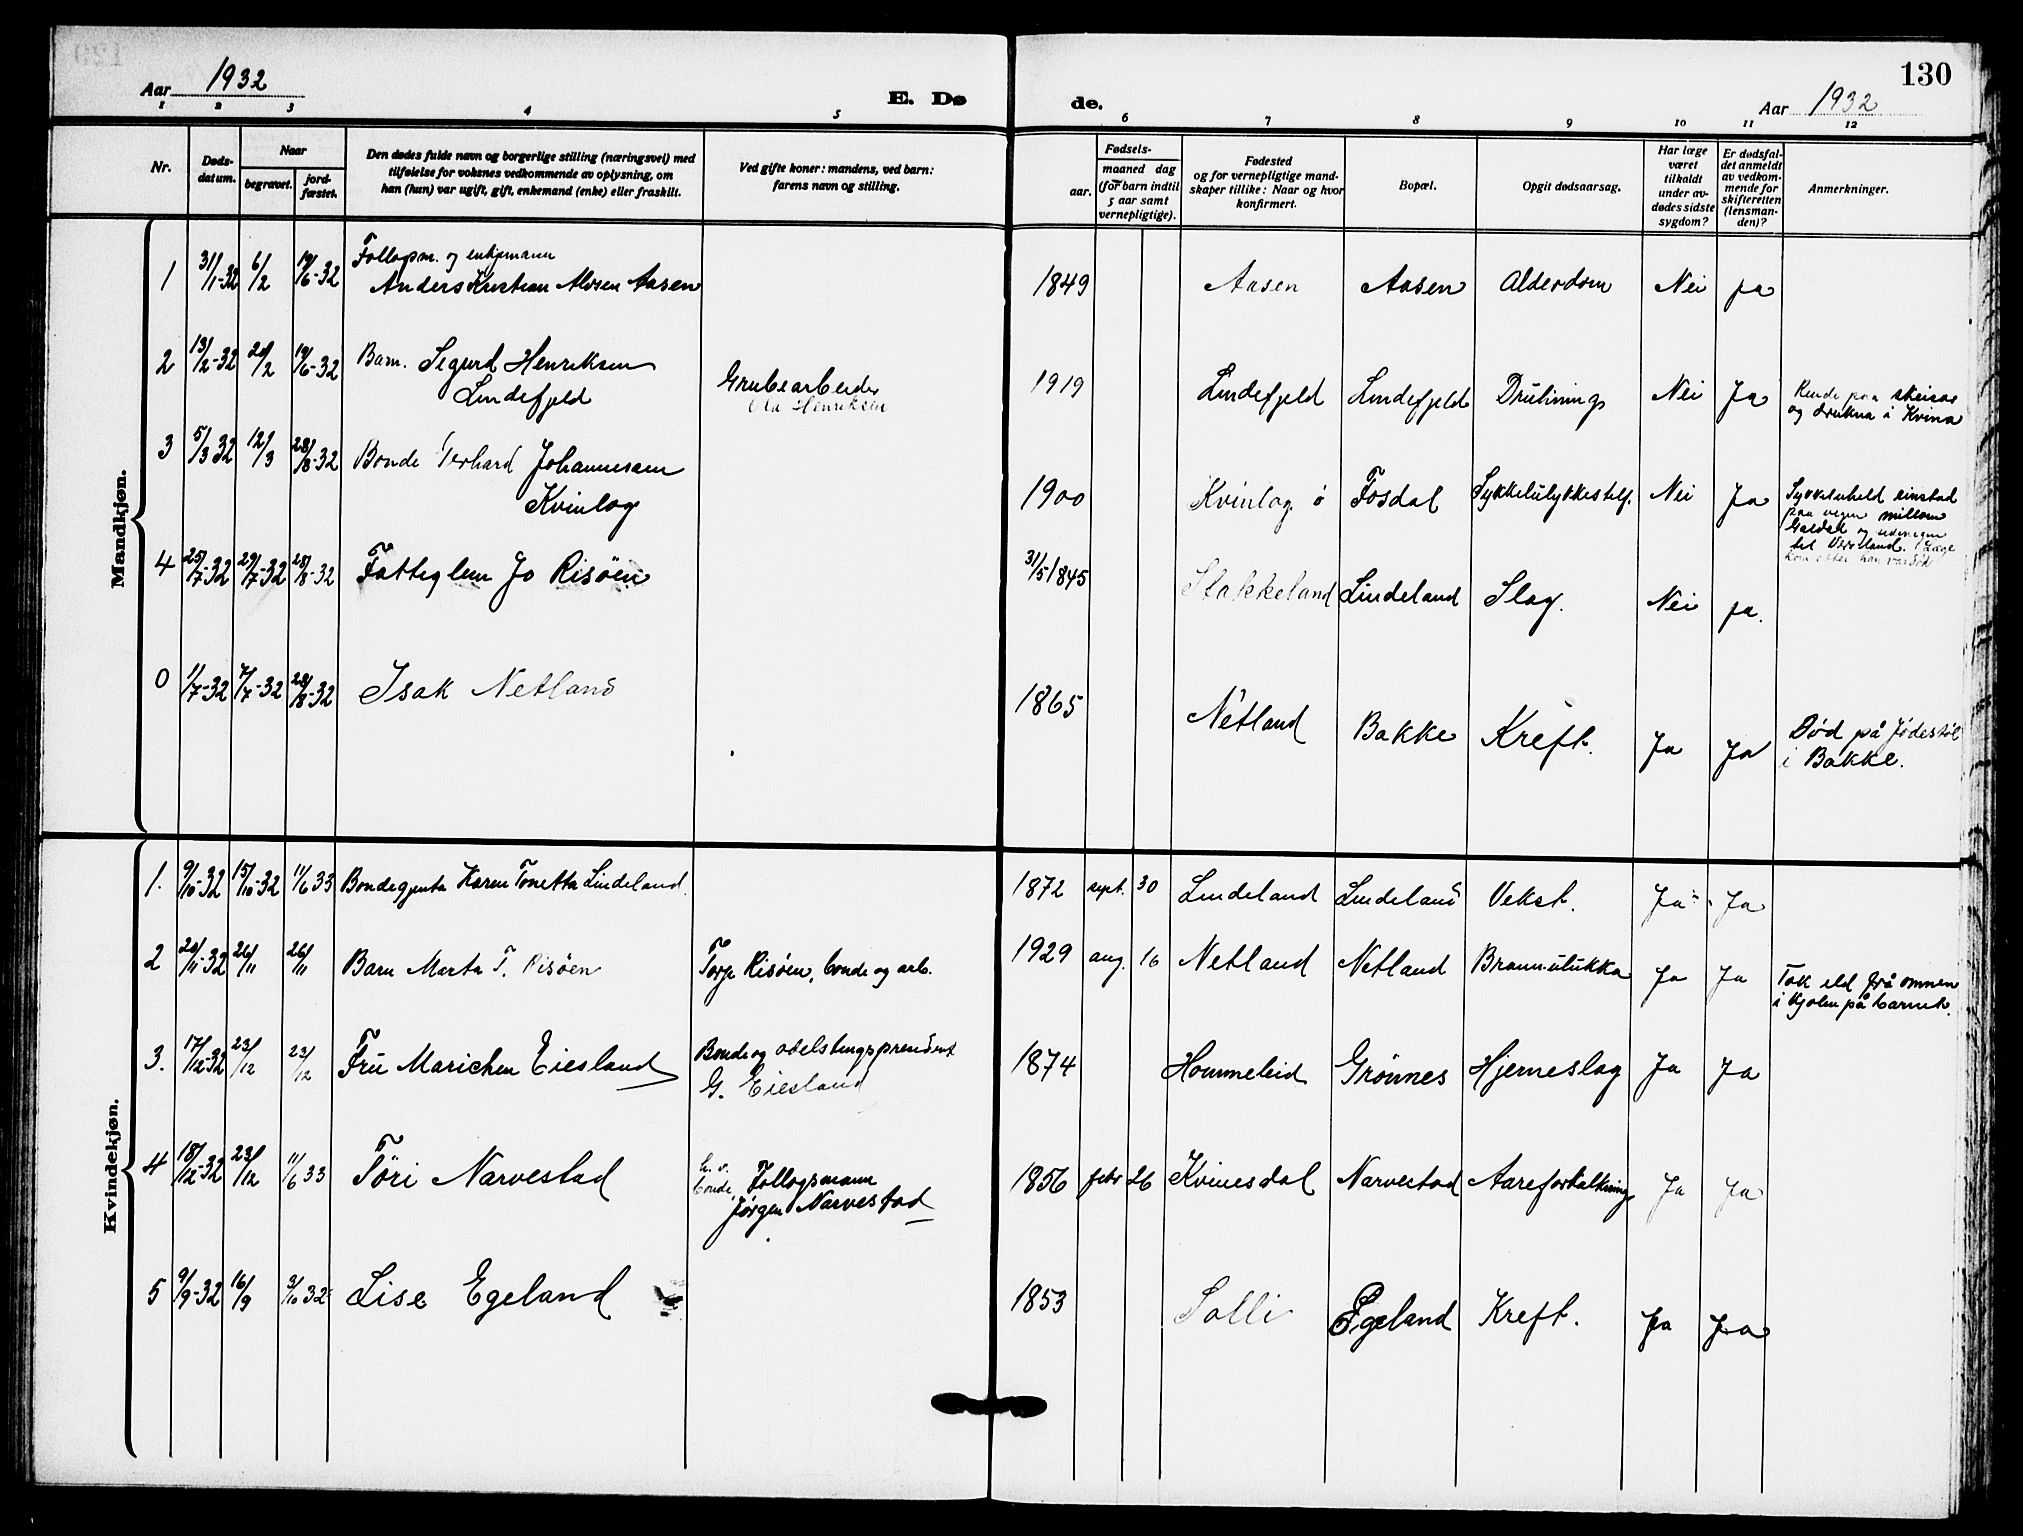 Aar 1932
E. Dø
de.
Aar 1932
130
1 2 3 4 5 6 7 8 9 10 11 12
Nr.
Døds-
datum.
Naar
begravet.
jord-
fæstet.
Den dødes fulde navn og borgerlige stilling (næringsvei) med
tilføielse for voksnes vedkommende av oplysning, om
han (hun) var ugift, gift, enkemand (enke) eller fraskilt.
Ved gifte koner: mandens, ved barn:
farens navn og stilling.
Fødsels-
aar.
maaned dag
(for barn indtil
5 aar samt
vernepligtige).
Fødested
og for vernepligtige mand-
skaper tillike: Naar og hvor
konfirmert.
Bopæl.
Opgit dødsaarsag.
Har læge
været
tilkaldt
under av-
dødes sidste
sygdom?
Er dødsfal-
det anmeldt
av vedkom-
mende for
skifteretten
(lensman-
den)?
Anmerkninger.
Mandkjøn.
1 31/1-32 6/2 19/6-32 Follogsm. og enkjemann
Anders Kristian Aasen 1849 Aasen Aasen Alderdom Nei ja
2 13/2-32 20/2 19/6-32 Barn. Sigurd Henriksen
Lindefjeld
Grubearbeider
Ola Henriksen
1919 Lindefjeld Lindefjeld Drukning Nei Ja
Rende paa skeisar
og drukna i Kvina
3 5/3 32 12/3 28/8-32 Bonde Gerhard Johannesen
Kvinlog
1900 Kvinlog Fosdal Sykkelulykkestilf. Nei Ja
Sykkelveld einstad
paa vegen millom
til Læge
kom etter han var død
4 25/7-32 29/7-32 28/8-32 Fattiglem Jo Risøen 31/5 1845 Stakkeland Lindeland Slag. Nei ja.
0 1/7-32 7/7-32 28/8-32 Isak Netland 1865 Netland Bakke Kreft. Ja Ja
Død på Jødestøl
i Bakke.
Kvindekjøn.
1. 9/10-32 15/10-32 11/6 33 Bondegjenta Karen Tonetta Lindeland. 1872 sept. 30 Lindeland Lindeland Vekst. Ja Ja
2 20/11-32 26/11 26/11 Barn Marta T. Risöen
Torje Risöen, bonde og arb.
1929 aug. 16 Netland Netland Brann-ulukka Ja Ja
Tok eld frå omnen
i kjolen på barnet.
3. 17/12-32 23/12 23/12 Fru Marichen Eiesland
Bonde og odelstingspresident
G. Eiesland
1874 Hommeleid Grönnes Hjerneslag Ja Ja
4 18/12-32 23/12 11/6 33 Töri Narvestad
h. v.
bonde, Follogsmann
Jørgen Narvestad
1856 febr 26 Kvinesdal Narvestad Aareforkalkning Ja Ja
5 9/9-32 16/9 9/10 32 Lise Egeland 1853 Solli Egeland Kreft. Ja Ja